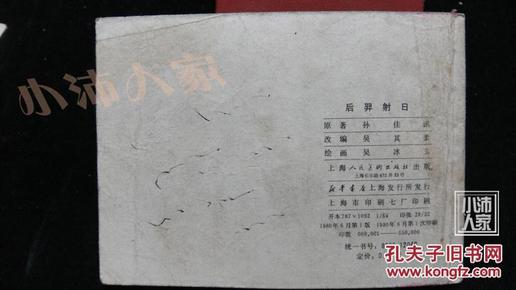 小沛人家
后羿射日
原著 孙佳
改编 吴其柔
绘画 吴冰
上海人民美术出版社出版
上海长乐路672弄33号
新华书店上海发行所发行
上海市印刷七厂印刷
开本787×1092 1/64 印张 28/32
1980年6月第1版 1980年6月第1次印刷
印数 000,001—550,000
统一书号:
定价:0.
小沛
人家
孔夫子旧书网